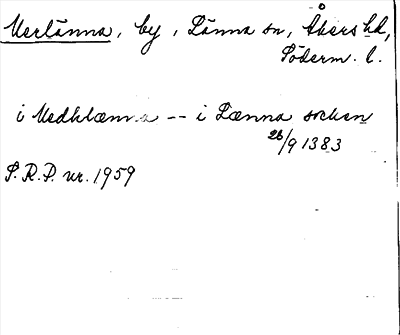 Merlänna, by, Länna sn, Åkers hd,
Söderm. l.
i Medhlænna -- i Lænna soken
26/9 1383
S.R.P. nr. 1959